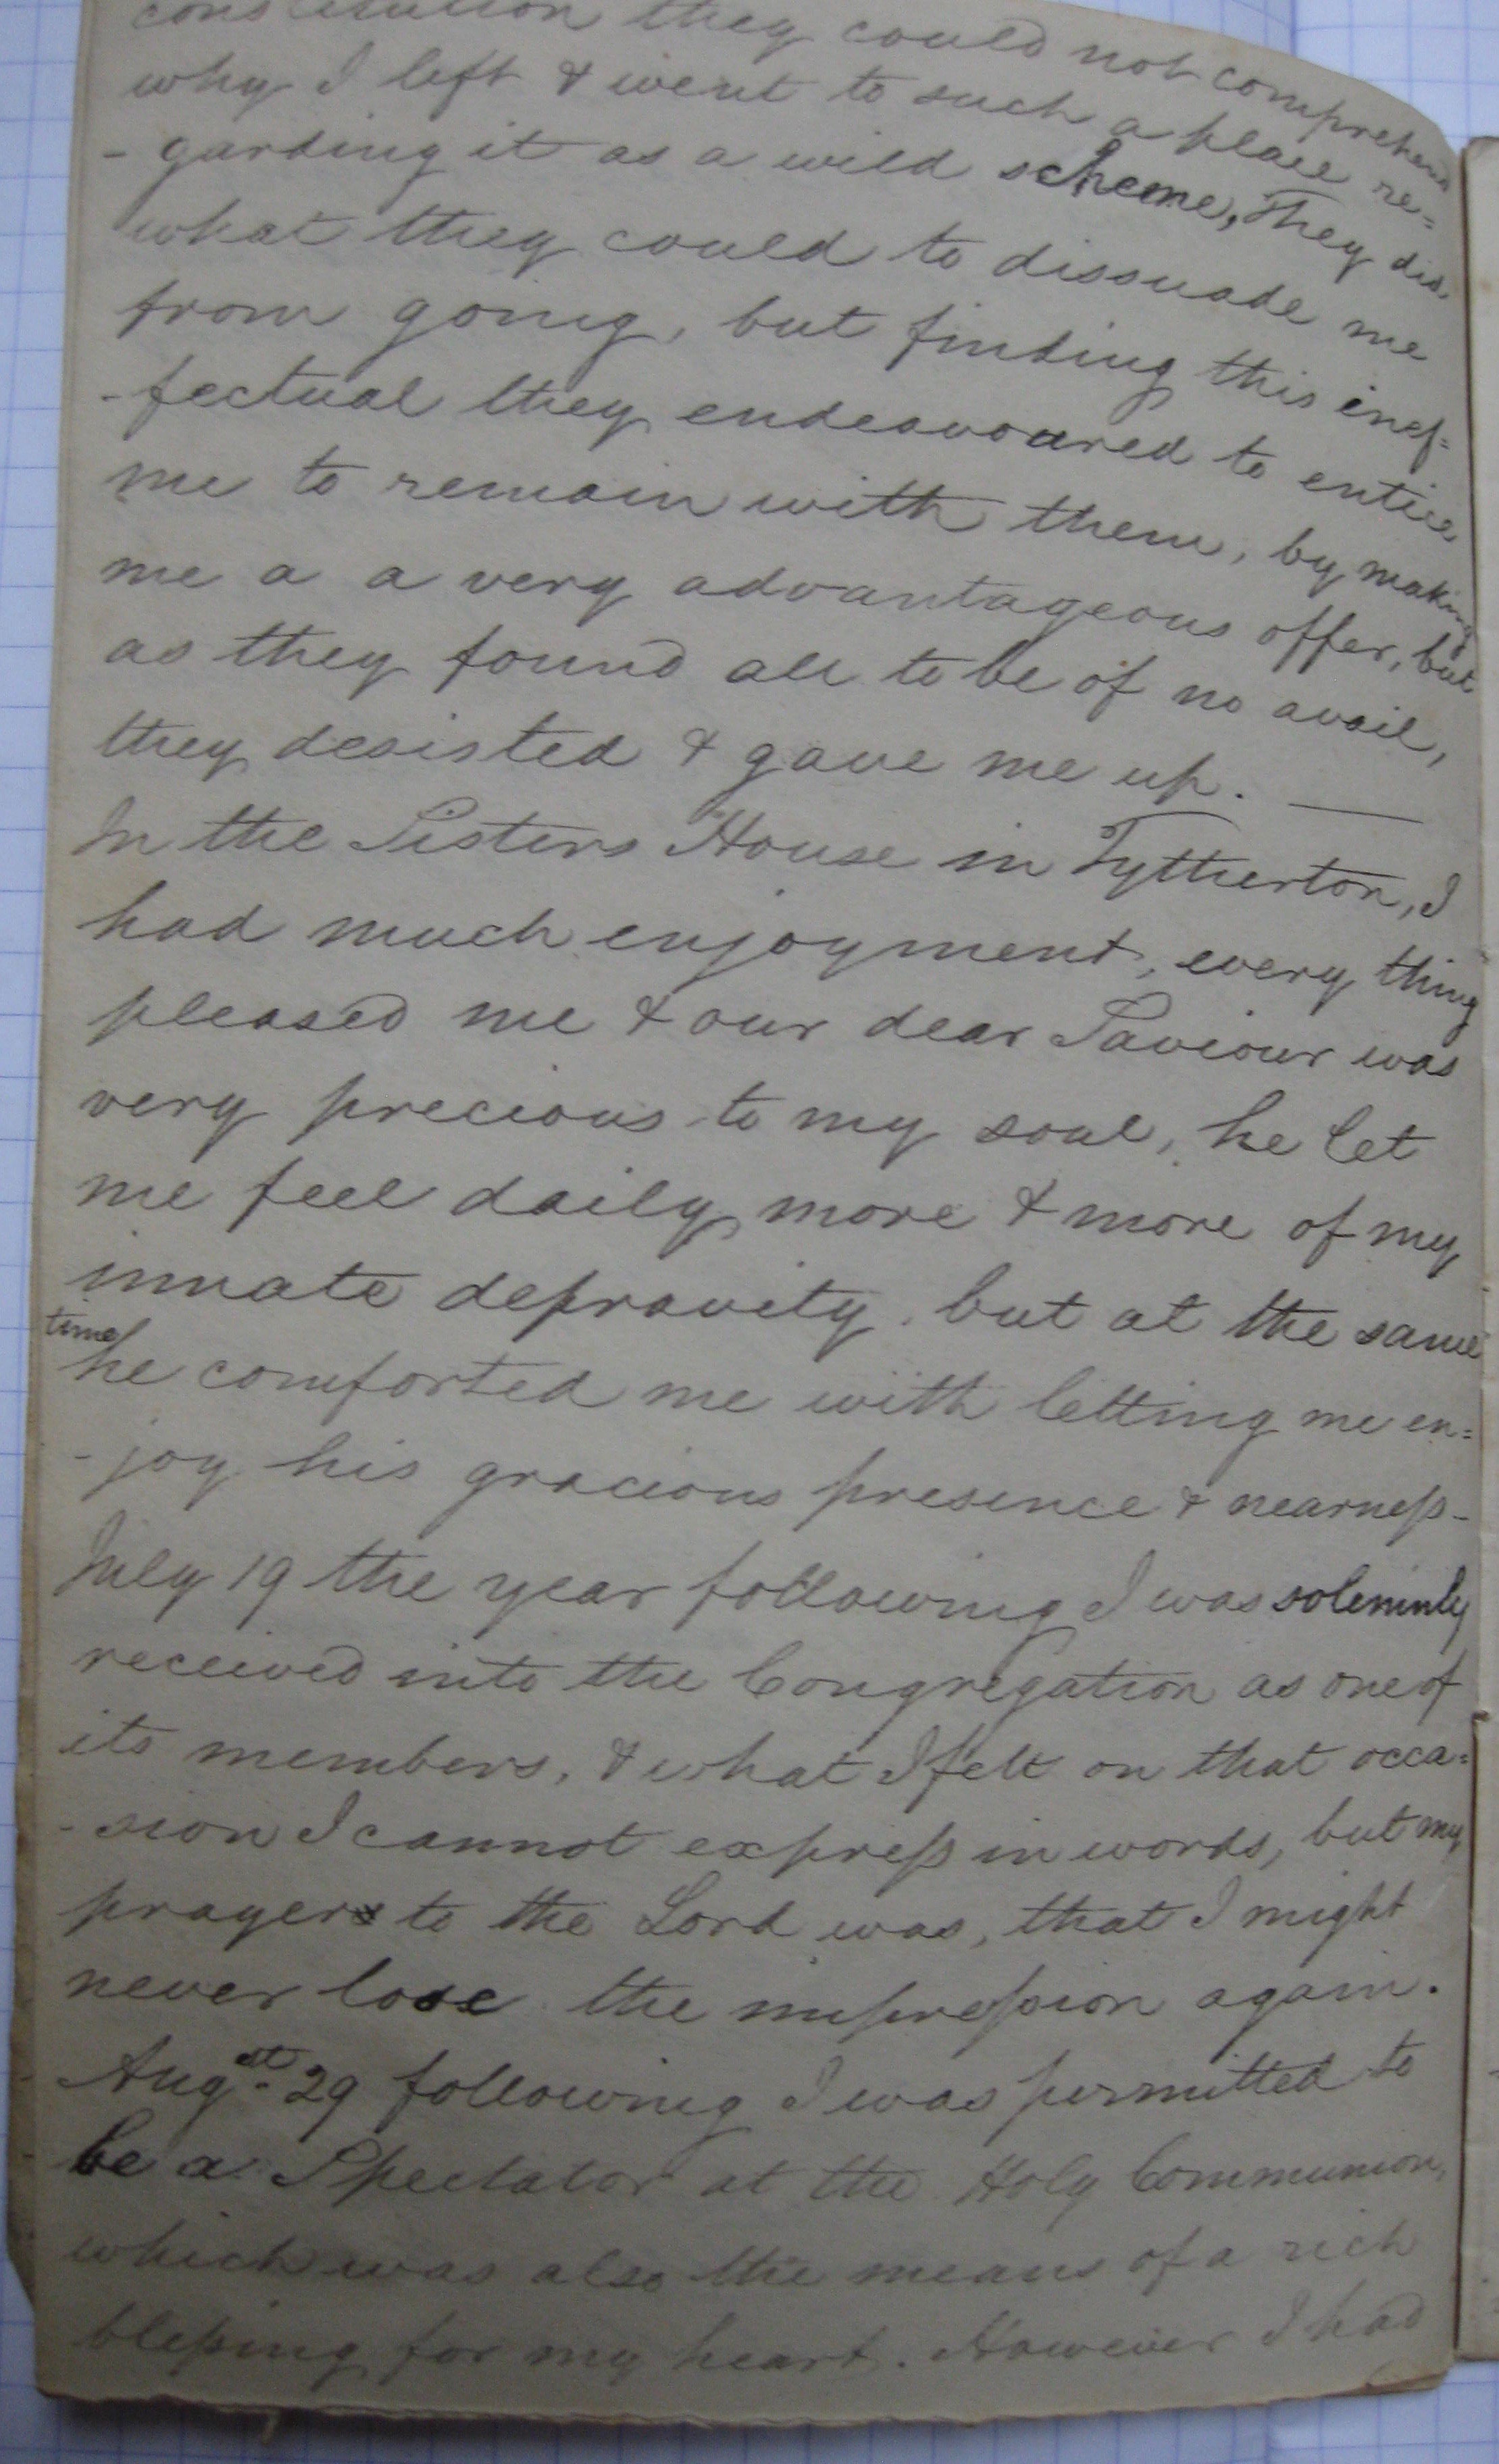 constitution they could not comprehend
why I left & went to such a place re=
-garding it as a wild scheme, They did
what they could to dissuade me
from going, but finding this inef=
-fectual they endeavoured to entice
me to remain with them, by making
me a a very advantageous offer, but
as they found all to be of no avail,
they desisted & gave me up. —
In the Sisters House in Tytherton, I
had much enjoyment, every thing
pleased me & our dear Saviour was
very precious to my soul, he let
me feel daily more & more of my
innate depravity, but at the same
time he comforted me with letting me en=
-joy his gracious presence & nearneſs-
July 19 the year following I was solemnly
received into the Congregation as one of
its members, & what I felt on that occa=
-sion I cannot expreſs in words, but my
prayers to the Lord was, that I might
never lose the impreſsion again.
Augst. 29 following I was permitted to
be a Spectator at the Holy Communion,
which was also the means of a rich
bleſsing for my heart. However I had